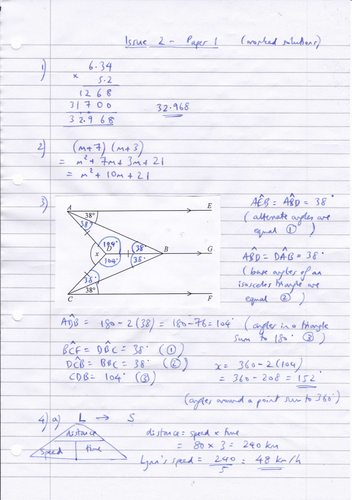 Issue 2 - Paper 1 (worked solutions)
1)
6.34
x 5.2
1268
31700
32.968
32.968
2) (m+7)(m+3)
= m² + 7m + 3m + 21
= m² + 10m + 21
3)
A 38° E
38°
x D 104° 38° B G
104° 38°
38°
C 38° F
AÊB = AB̂D = 38°
(alternate angles are
equal ①)
AB̂D = DÂB = 38°
(base angles of an
isosceles triangle are
equal ②)
AD̂B = 180 - 2(38) = 180 - 76 = 104° (angles in a triangle
sum to 180° ③)
BĈF = DB̂C = 38° ①
DĈB = DB̂C = 38° ②
CDB = 104° ③
x = 360 - 2(104)
= 360 - 208 = 152°
(angles around a point sum to 360°)
4) a) L → S
distance
speed time
distance = speed x time
= 80 x 3 = 240 km
Lynn's speed = 240/5 = 48 km/h